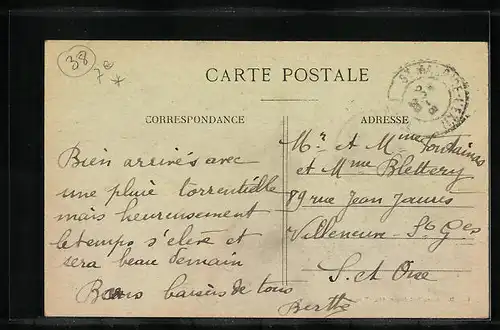 38
7e *
CARTE POSTALE
CORRESPONDANCE
ADRESSE
Bien arrivés avec
une pluie torrentielle
mais heureusement
le temps s'eleve et
sera beau demain
Bons baisers de tous
Berthe
Mr et Mme Fontaines
et Mme Blettery
89 rue Jean Jaures
Villeneuve St Ges
S. et Oise